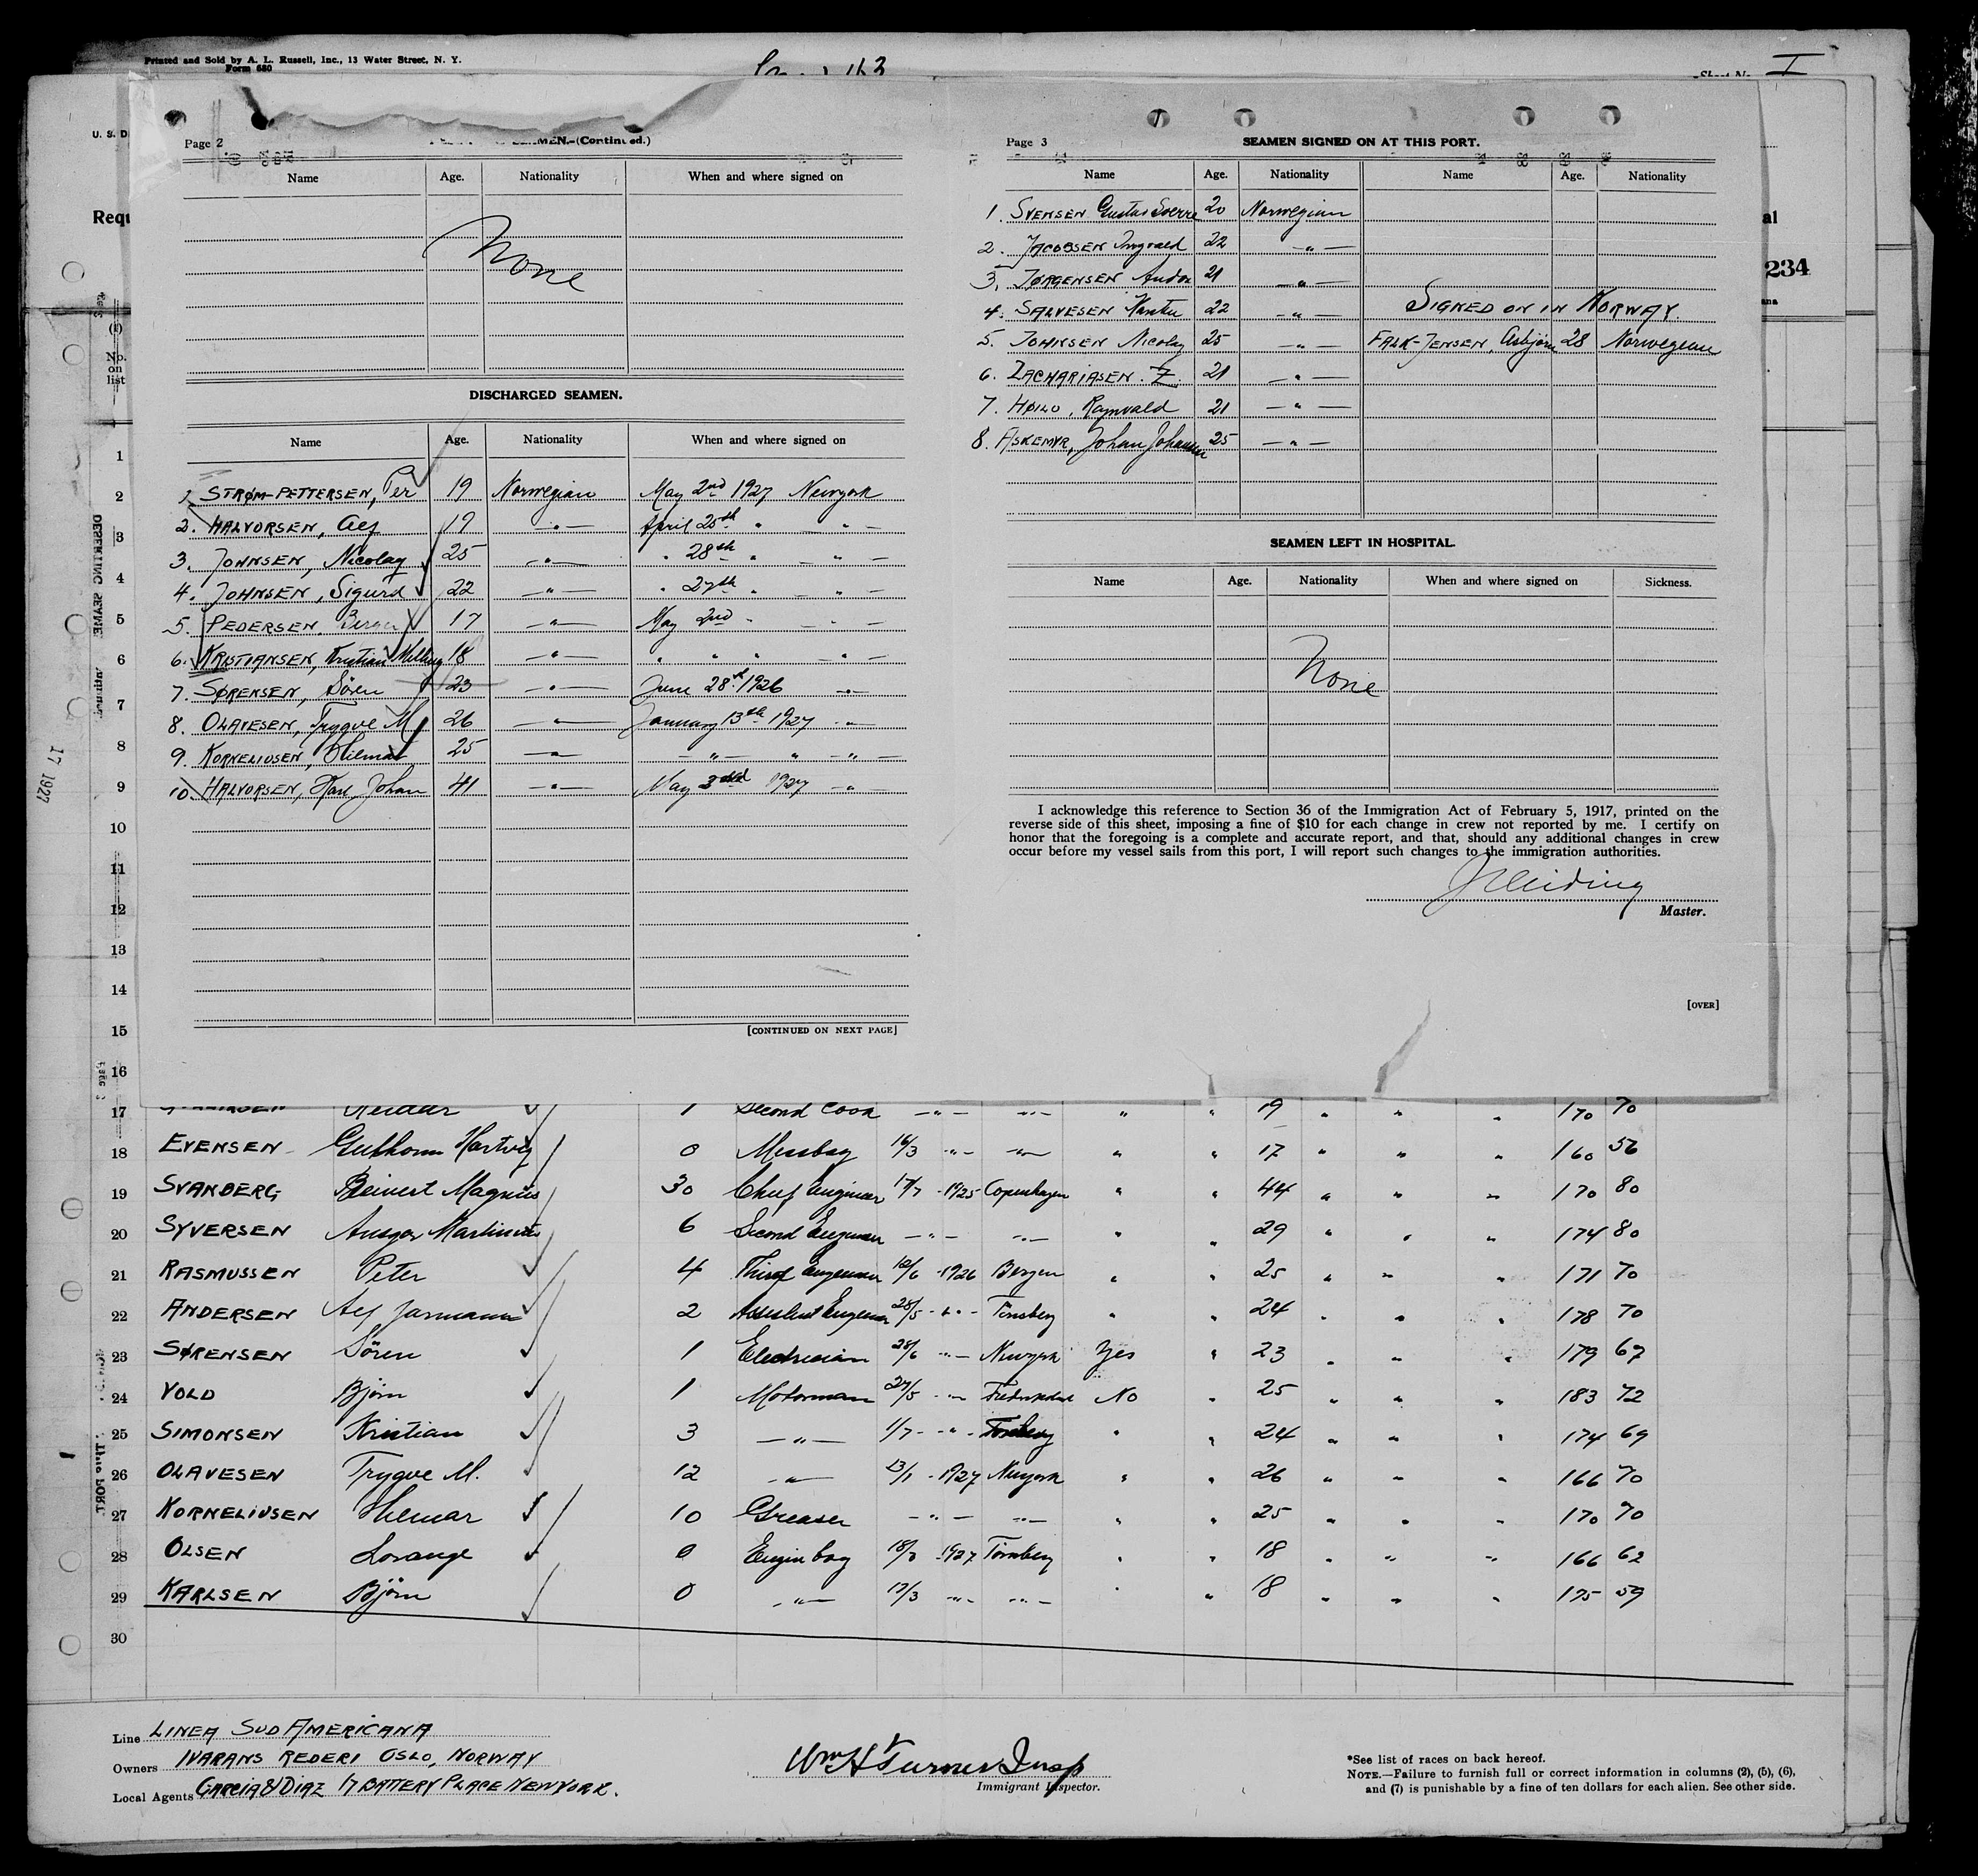 Printed and Sold by A. L. Russell, Inc., 13 Water Street, N. Y.
Form 680
Sheet No. I
U. S. D
Page 2 SEAMEN.—(Continued.)
Name Age. Nationality When and where signed on
None
DISCHARGED SEAMEN.
Name Age. Nationality When and where signed on
1. STRØM-PETTERSEN, Per 19 Norwegian May 2nd 1927 Newyork
2. HALVORSEN, Alf 19 —"— April 25th " —"—
3. JOHNSEN, Nicolay 25 —"— " 28th " —"—
4. JOHNSEN, Sigurd 22 —"— " 27th " —"—
5. PEDERSEN, Berger 17 —"— May 2nd " —"—
6. KRISTIANSEN, Kristian Melling 18 —"— " " " —"—
7. SØRENSEN, Sören 23 —"— June 28th 1926 —"—
8. OLAVESEN, Trygve M. 26 —"— January 13th 1927 —"—
9. KORNELIUSEN, Hilmar 25 —"— —"— " —"—
10. HALVORSEN, Karl Johan 41 —"— May 3rd 1927 —"—
[CONTINUED ON NEXT PAGE]
Page 3 SEAMEN SIGNED ON AT THIS PORT.
Name Age. Nationality Name Age. Nationality
1. SVENSEN Gustav Sverre 20 Norwegian
2. JACOBSEN Ingvald 22 —"—
3. JØRGENSEN 21 —"—
4. SALVESEN 22 —"— SIGNED ON IN NORWAY.
5. JOHNSEN Nicolay 25 —"— FALK-JENSEN, Asbjörn 28 Norwegian
6. ZACHARIASEN. Z. 21 —"—
7. HØILO, Ragnvald 21 —"—
8. ASKEMYR, Johan Johannes 25 —"—
SEAMEN LEFT IN HOSPITAL.
Name Age. Nationality When and where signed on Sickness.
None
I acknowledge this reference to Section 36 of the Immigration Act of February 5, 1917, printed on the
reverse side of this sheet, imposing a fine of $10 for each change in crew not reported by me. I certify on
honor that the foregoing is a complete and accurate report, and that, should any additional changes in crew
occur before my vessel sails from this port, I will report such changes to the immigration authorities.
Master.
[OVER]
Requ
al
234
No.
on
list
17 1927
1
2
3
4
5
6
7
8
9
10
11
12
13
14
15
16
17 Reidar 1 Second Cook —"— —"— " " 19 " " " 170 70
18 EVENSEN Guthorm Hartvig 0 Messboy 16/3 —"— —"— " " 17 " " " 160 56
19 SVANBERG Beivert Magnus 30 Chief Engineer 17/7 -1925 Copenhagen " " 44 " " " 170 80
20 SYVERSEN Ansgar Martinius 6 Second Engineer —"— —"— " " 29 " " " 174 80
21 RASMUSSEN Peter 4 Third Engineer 12/6 -1926 Bergen " " 25 " " " 171 70
22 ANDERSEN Alf Jarmann 2 Assistent Engineer 28/5 —"— Tönsberg " " 24 " " " 178 70
23 SØRENSEN Sören 1 Electrician 28/6 —"— Newyork Yes " 23 " " " 179 67
24 VOLD Björn 1 Motorman 27/5 —"— Fredrikstad No " 25 " " " 183 72
25 SIMONSEN Kristian 3 —"— 1/7 —"— Tönsberg " " 24 " " " 174 69
26 OLAVESEN Trygve M. 12 —"— 13/1 -1927 Newyork " " 26 " " " 166 70
27 KORNELIUSEN Hilmar 10 Greaser —"— —"— " " 25 " " " 170 70
28 OLSEN Lorange 0 Engin boy 18/3 1927 Tönsberg " " 18 " " " 166 62
29 KARLSEN Björn 0 —"— 17/3 —"— —"— " " 18 " " " 175 59
30
Line LINEA SUD AMERICANA
Owners IVARANS REDERI OSLO, NORWAY
Local Agents GARCIA & DIAZ 17 BATTERY PLACE NEW YORK.
Wm H Turner Insp
Immigrant Inspector.
*See list of races on back hereof.
NOTE.—Failure to furnish full or correct information in columns (2), (5), (6),
and (7) is punishable by a fine of ten dollars for each alien. See other side.